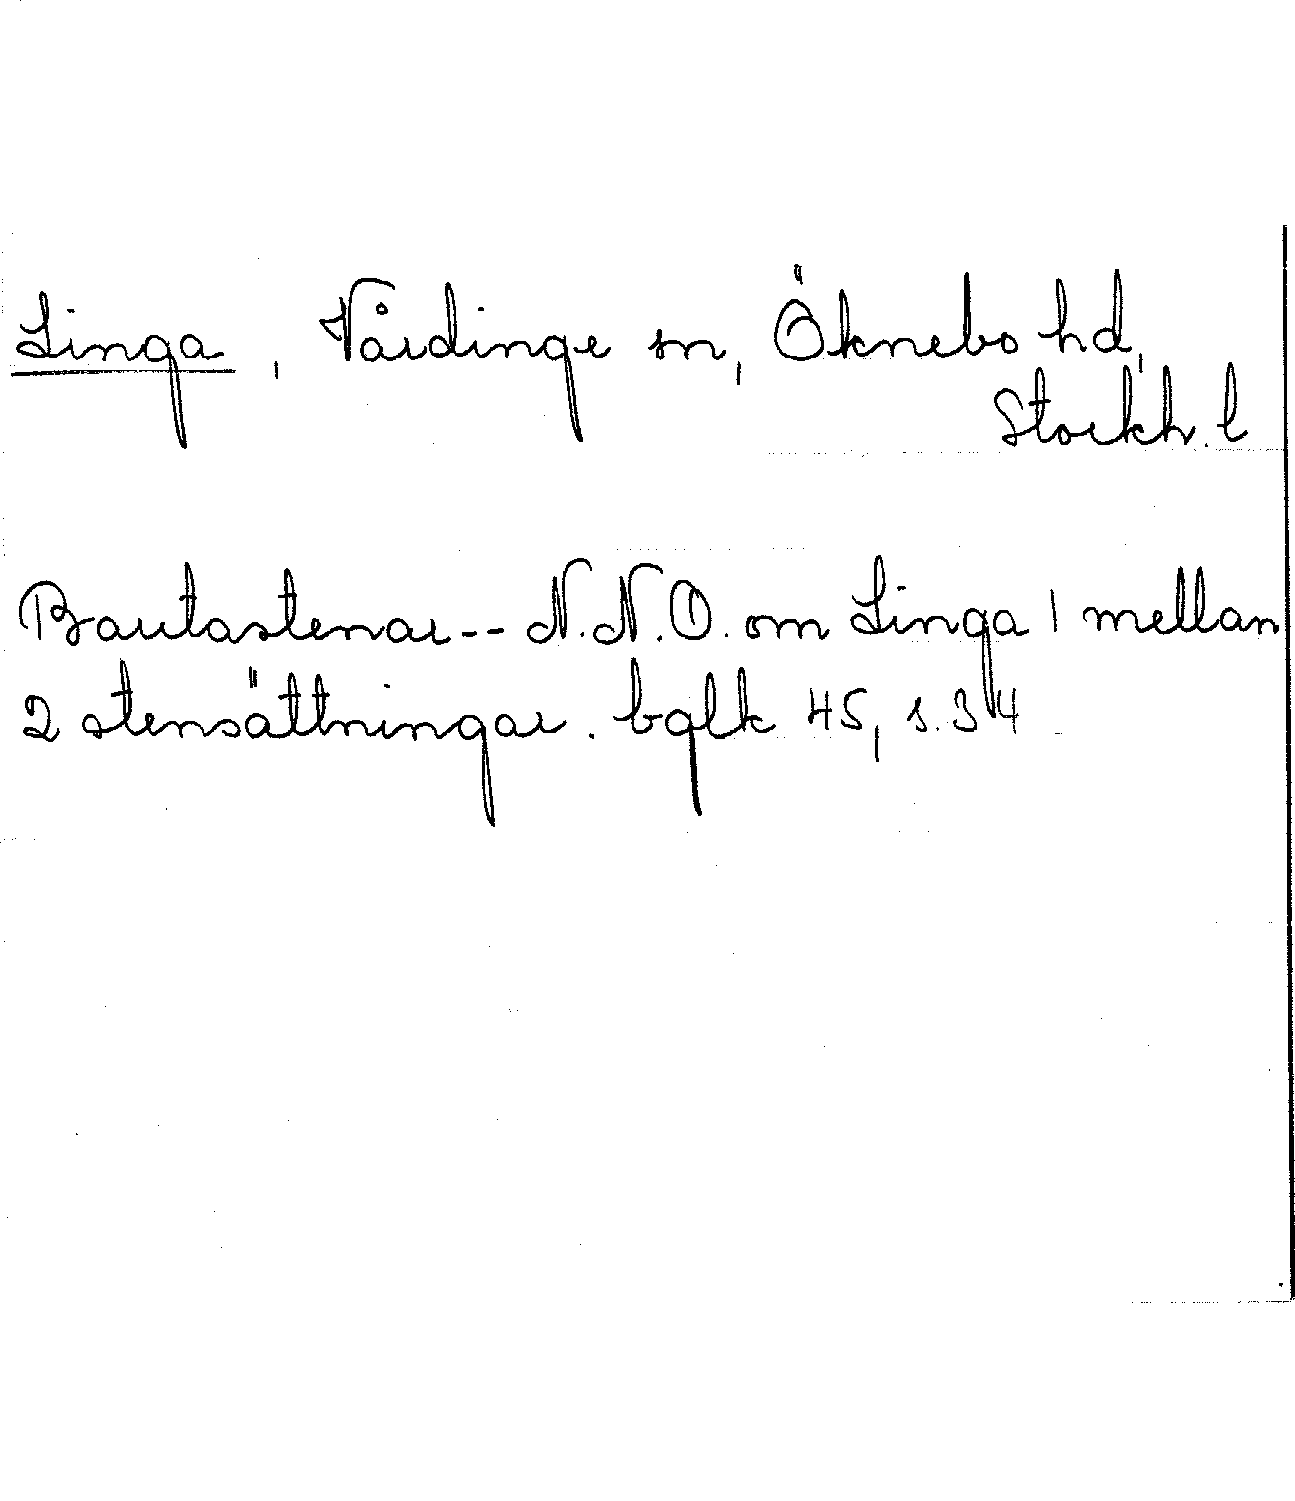 Linga, Vårdinge sn, Öknebo hd,
Stockh. l
Bautastenar -- N.N.O. om Linga 1 mellan
2 stensättningar. bglk 45, s. 34